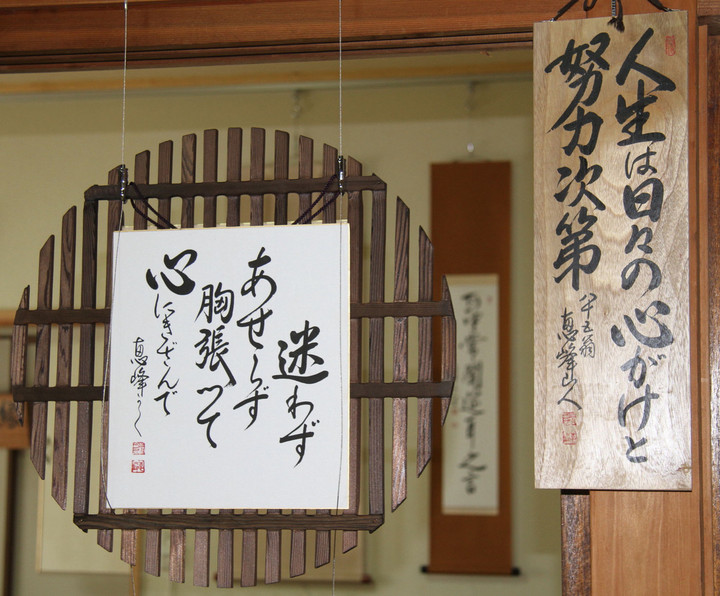 人生は日々の心がけと
努力次第
八十五翁
恵峰山人
迷わず
あせらず
胸張って
心
にきざんで
恵峰かく